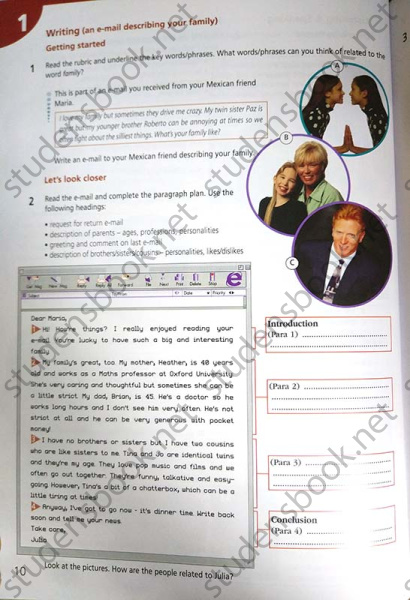 1
Writing (an e-mail describing your family)
Getting started
1 Read the rubric and underline the key words/phrases. What words/phrases can you think of related to the
word family?
This is part of an e-mail you received from your Mexican friend
Maria.
I love my family but sometimes they drive me crazy. My twin sister Paz is
but my younger brother Roberto can be annoying at times so we
fight about the silliest things. What's your family like?
Write an e-mail to your Mexican friend describing your family.
Let's look closer
2 Read the e-mail and complete the paragraph plan. Use the
following headings:
• request for return e-mail
• description of parents – ages, professions, personalities
• greeting and comment on last e-mail
• description of brothers/sisters/cousins – personalities, likes/dislikes
A
B
C
3
Dear Maria,
Hi! How're things? I really enjoyed reading your
e-mail. You're lucky to have such a big and interesting
family.
My family's great, too. My mother, Heather, is 40 years
old and works as a Maths professor at Oxford University.
She's very caring and thoughtful but sometimes she can be
a little strict. My dad, Brian, is 45. He's a doctor so he
works long hours and I don't see him very often. He's not
strict at all and he can be very generous with pocket
money!
I have no brothers or sisters but I have two cousins
who are like sisters to me. Tina and Jo are identical twins
and they're my age. They love pop music and films and we
often go out together. They're funny, talkative and easy-
going. However, Tina's a bit of a chatterbox, which can be a
little tiring at times.
Anyway, I've got to go now - it's dinner time. Write back
soon and tell me your news.
Take care,
Julia
Introduction
(Para 1)
(Para 2)
(Para 3)
Conclusion
(Para 4)
10
Look at the pictures. How are the people related to Julia?
studensbook.net